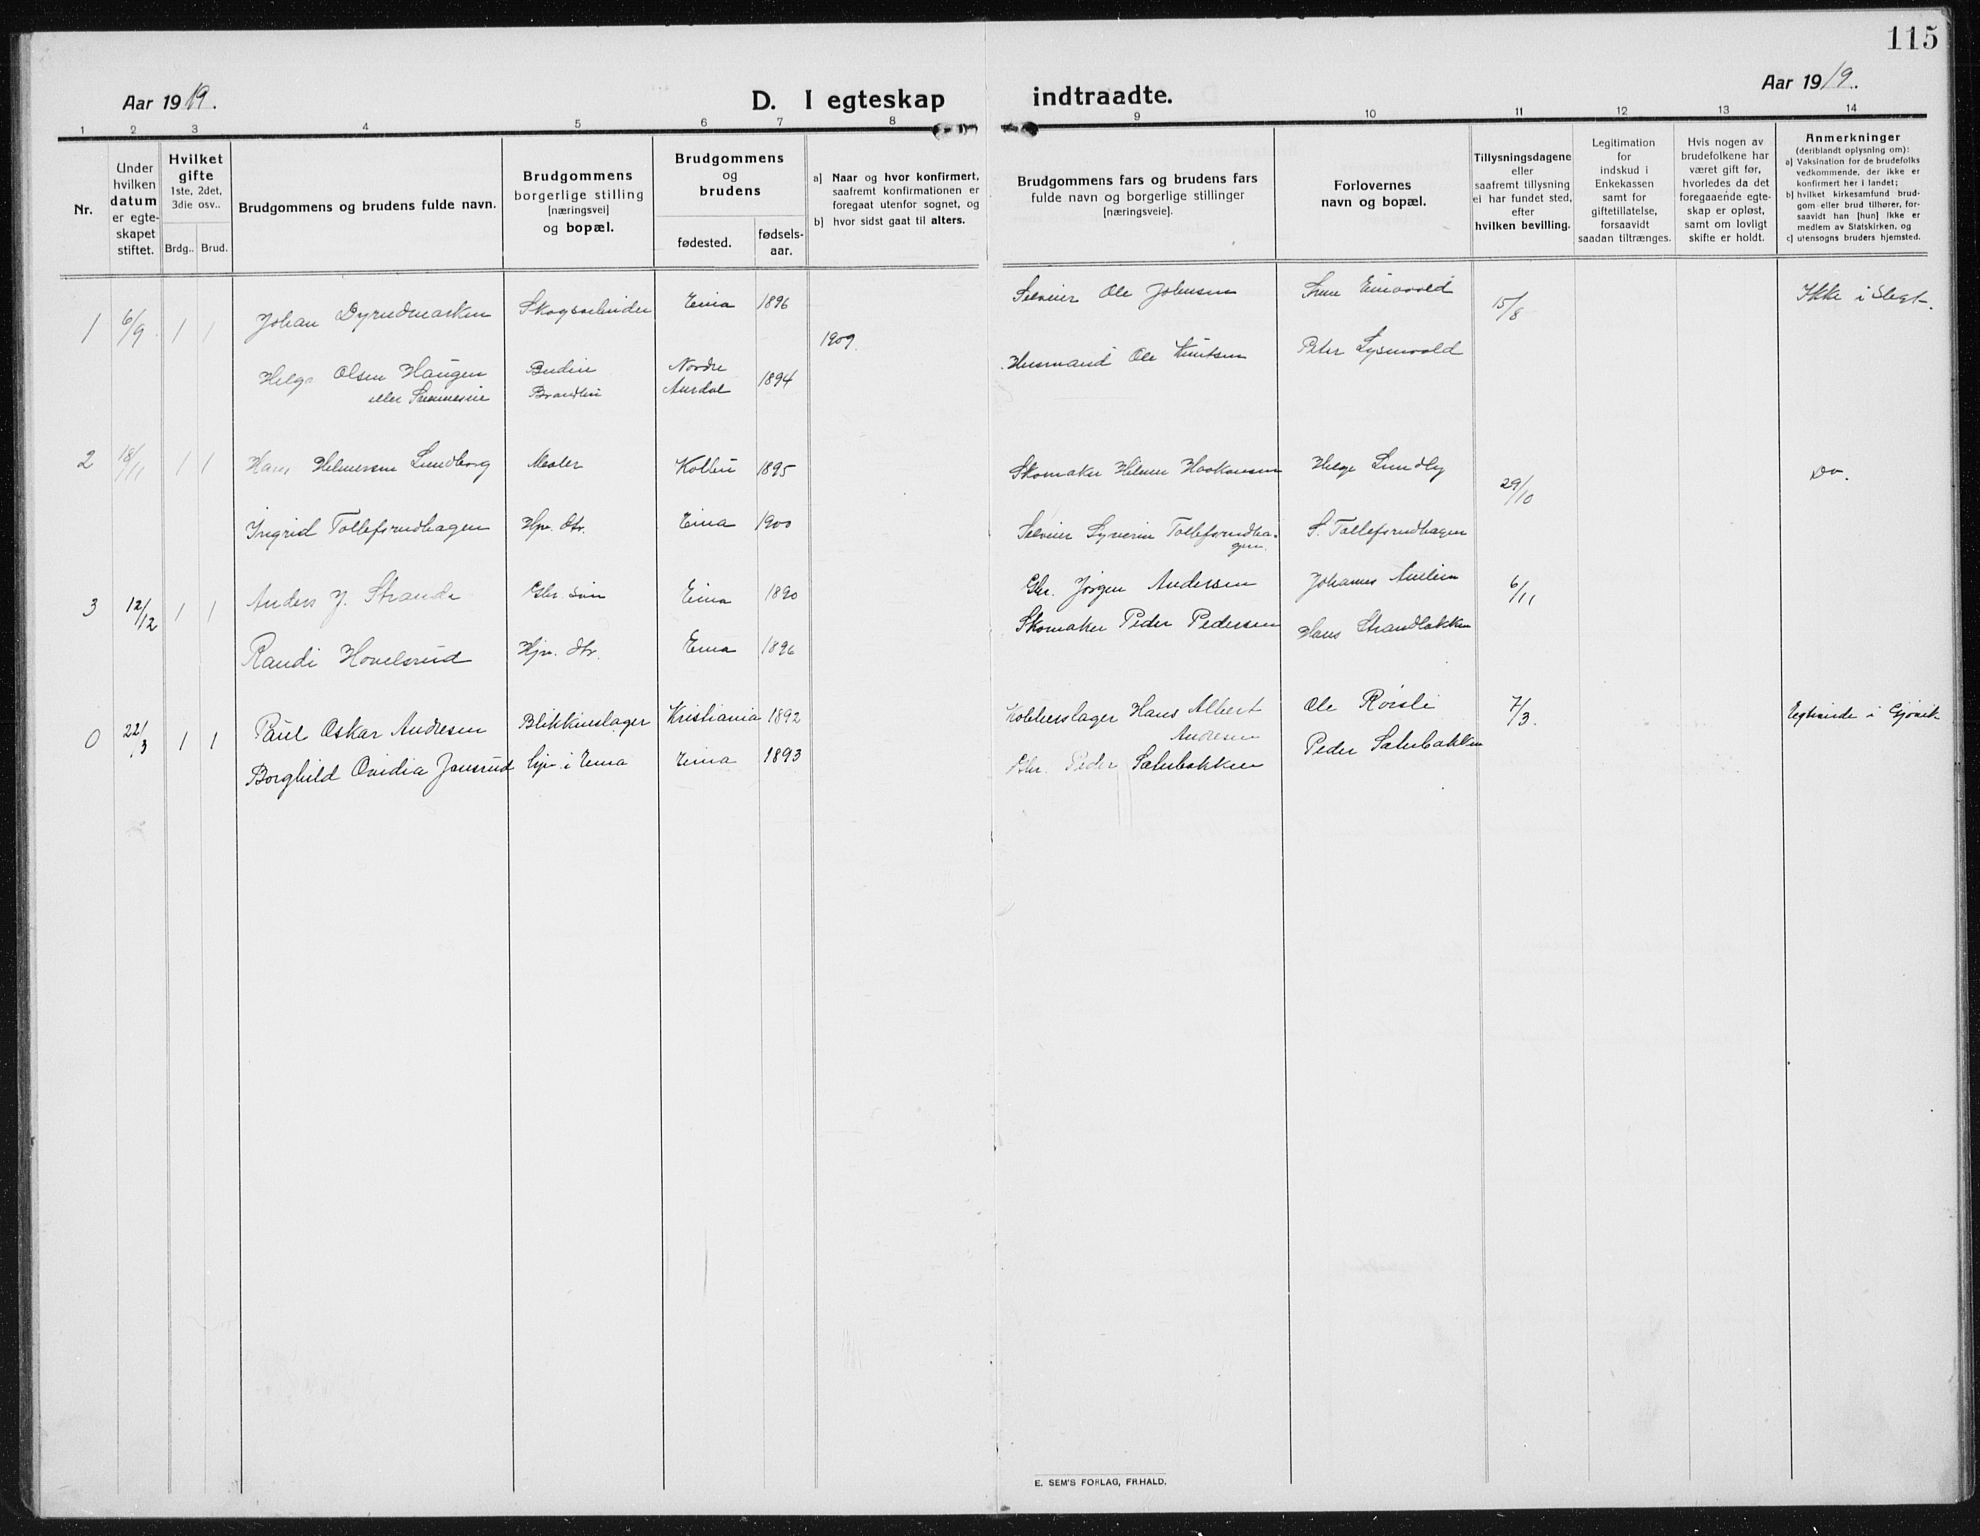 115
Aar 1919.
D. I egteskap indtraadte.
Aar 1919.
1 2 3 4 5 6 7 8 9 10 11 12 13 14
Nr.
Under
hvilken
datum
er egte-
skapet
stiftet.
Hvilket
gifte
1ste, 2det,
3die osv..
Brdg.. Brud.
Brudgommens og brudens fulde navn.
Brudgommens
borgerlige stilling
[næringsvei]
og bopæl.
Brudgommens
og
brudens
fødested.
fødsels-
aar.
a] Naar og hvor konfirmert,
saafremt konfirmationen er
foregaat utenfor sognet, og
b] hvor sidst gaat til alters.
Brudgommens fars og brudens fars
fulde navn og borgerlige stillinger
[næringsveie].
Forlovernes
navn og bopæl.
Tillysningsdagene
eller
saafremt tillysning
ei har fundet sted,
efter
hvilken bevilling.
Legitimation
for
indskud i
Enkekassen
samt for
giftetillatelse,
forsaavidt
saadan tiltrænges.
Hvis nogen av
brudefolkene har
været gift før,
hvorledes da det
foregaaende egte-
skap er opløst,
samt om lovligt
skifte er holdt.
Anmerkninger
(deriblandt oplysning om):
a] Vaksination for de brudefolks
vedkommende, der ikke er
konfirmert her i landet;
b] hvilket kirkesamfund brud-
gom eller brud tilhører, for-
saavidt han [hun] ikke er
medlem av Statskirken, og
c] utensogns bruders hjemsted.
1 6/9 1 1 Johan Dyrudmarken Skogsarbeider Eina 1896 Selveier Ole Johnsen 15/8 Ikke i Slegt.
1909
Helga Olsen Haugen Budeie Nordre Husmand Ole Knutsen Peter
eller Aurdal 1894
2 18/11 1 1 Hans Helmersen Lundborg Maler Kolbu 1895 Skomaker Hilmer Haakonsen Helge Lundby 29/10 Do.
Ingrid Tollefsrudhagen Hjv. dtr. Eina 1900 Selveier Syverin Tollefsrudha- S. Tollefsrudhagen
gen.
3 12/12 1 1 Anders J. Strande Gbr. søn Eina 1890 Gbr. Jørgen Andersen Johannes 6/11
Randi Hovelsrud Hjv. dtr. Eina 1896 Skomaker Peder Pedersen Hans Strandbakken
0 22/3 1 1 Paul Oskar Andresen Blikkenslager Kristiania 1892 Kobberslager Hans Albert Ole Røisli 7/3. Egteviede i Gjøvik
Andresen
Borghild Ovidia Jonsrud hjv. i Eina Eina 1893 Gbr. Peder Sætrebakken Peder Sætrebakken
E. SEM'S FORLAG, FR.HALD.